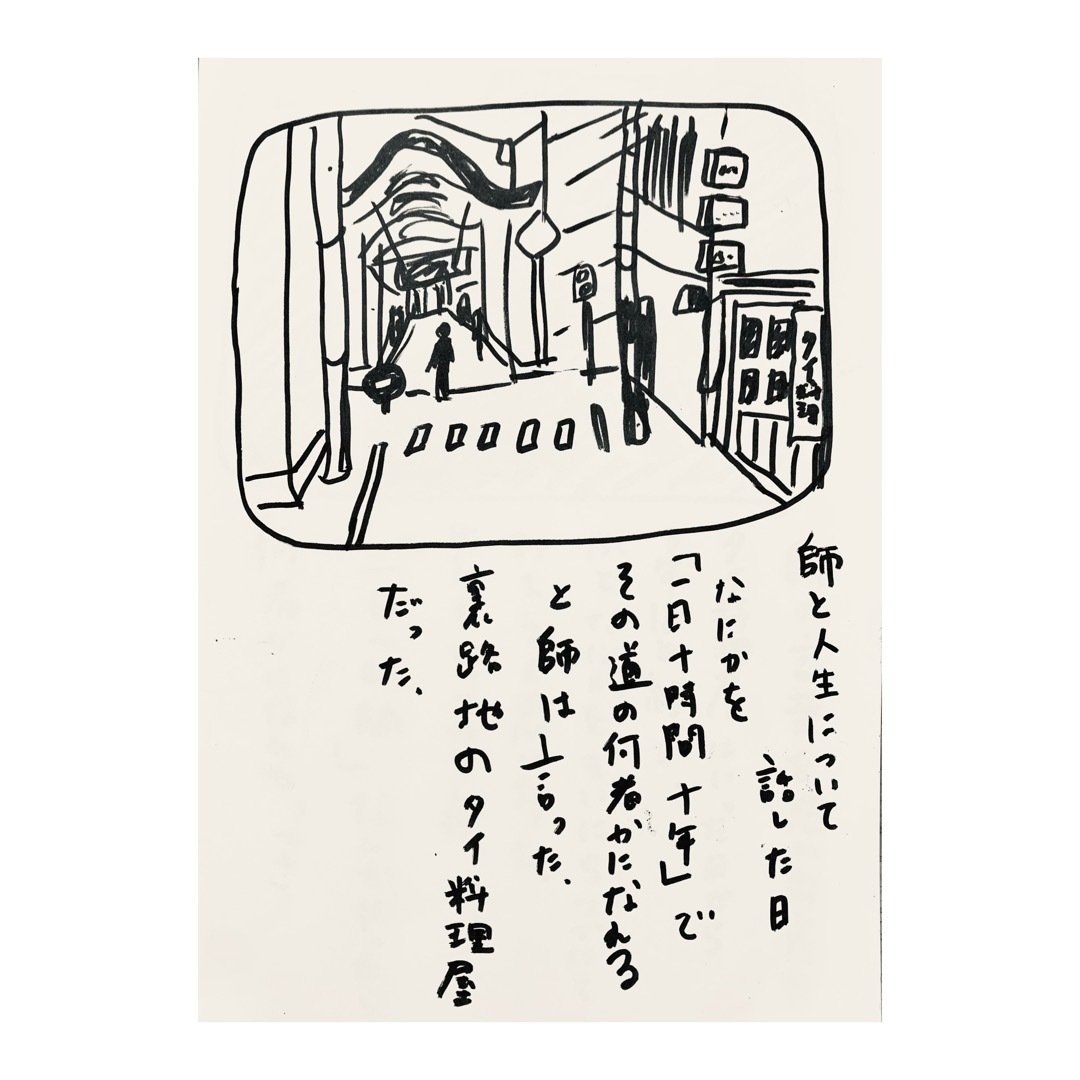 タイ料理
師と人生について
話した日
なにかを
「一日十時間十年」で
その道の何者かになれる
と師は言った、
裏路地のタイ料理屋
だった、